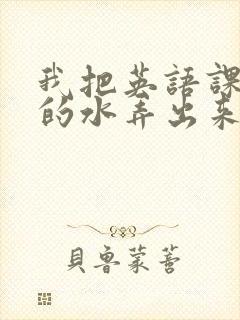 我把英語課
的水弄出來
貝魯蒙蒈